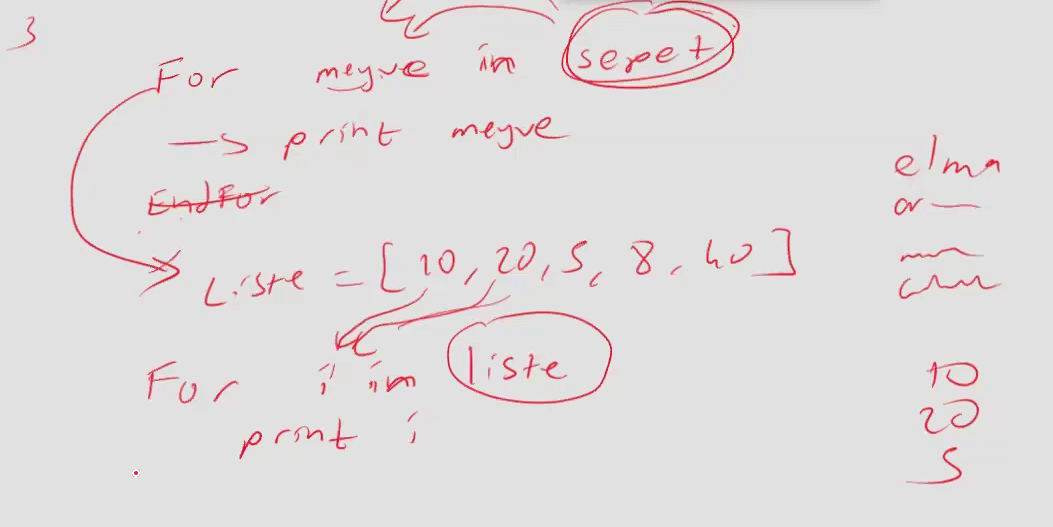 3
For meyve in sepet
→ print meyve
EndFor
Liste = [10, 20, 5, 8, 40]
For i in liste
print i
elma
or
10
20
5